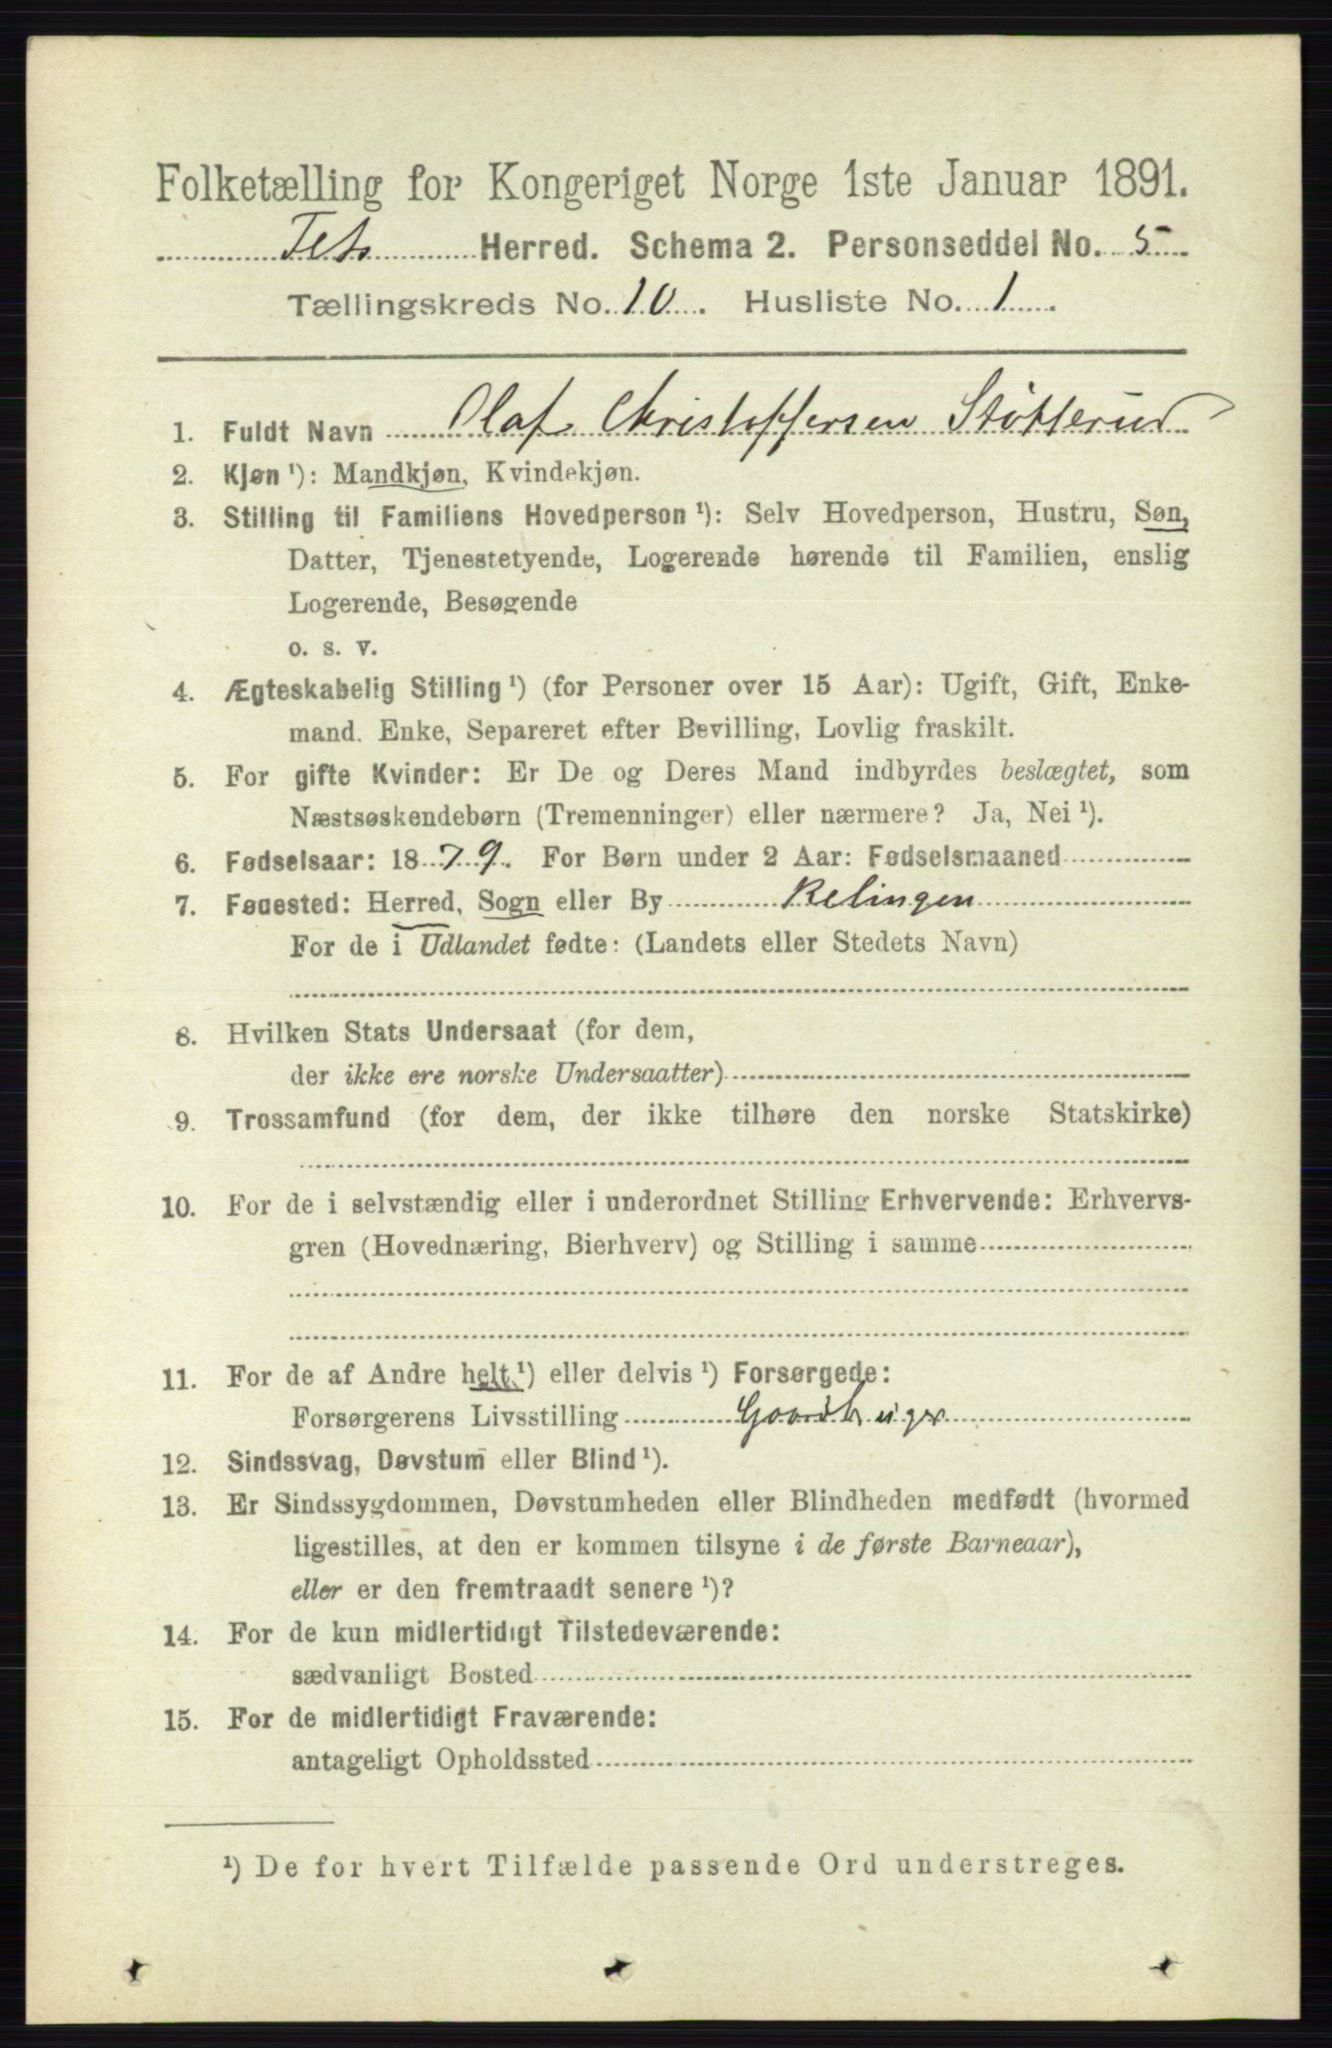 Folketælling for Kongeriget Norge 1ste Januar 1891.
Fet Herred. Schema 2. Personseddel No. 5
Tællingskreds No. 10. Husliste No. 1
1. Fuldt Navn Olaf Christoffersen Støtterud
2. Kjøn ¹): Mandkjøn, Kvindekjøn.
3. Stilling til Familiens Hovedperson ¹): Selv Hovedperson, Hustru, Søn,
Datter, Tjenestetyende, Logerende hørende til Familien, enslig
Logerende, Besøgende
o. s. v.
4. Ægteskabelig Stilling ¹) (for Personer over 15 Aar): Ugift, Gift, Enke-
mand. Enke, Separeret efter Bevilling, Lovlig fraskilt.
5. For gifte Kvinder: Er De og Deres Mand indbyrdes beslægtet, som
Næstsøskendebørn (Tremenninger) eller nærmere? Ja, Nei ¹).
6. Fødselsaar: 1879. For Børn under 2 Aar: Fødselsmaaned
7. Fødested: Herred, Sogn eller By Relingen
For de i Udlandet fødte: (Landets eller Stedets Navn)
8. Hvilken Stats Undersaat (for dem,
der ikke ere norske Undersaatter)
9. Trossamfund (for dem, der ikke tilhøre den norske Statskirke)
10. For de i selvstændig eller i underordnet Stilling Erhvervende: Erhvervs-
gren (Hovednæring, Bierhverv) og Stilling i samme
11. For de af Andre helt ¹) eller delvis ¹) Forsørgede:
Forsørgerens Livsstilling Gaardbruger
12. Sindssvag, Døvstum eller Blind ¹).
13. Er Sindssygdommen, Døvstumheden eller Blindheden medfødt (hvormed
ligestilles, at den er kommen tilsyne i de første Barneaar),
eller er den fremtraadt senere ¹)?
14. For de kun midlertidigt Tilstedeværende:
sædvanligt Bosted
15. For de midlertidigt Fraværende:
antageligt Opholdssted
¹) De for hvert Tilfælde passende Ord understreges.